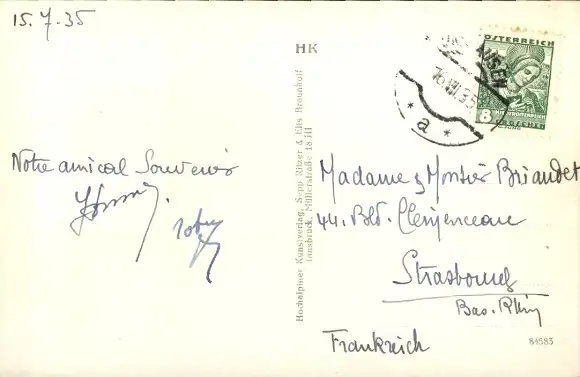 15.7.35
HK
ÖSTERREICH
16.VII.35
* a *
8
GROSCHEN
Notre amical Souvenir
Madame & Monsier Briandet
44. Bld. Clemenceau
Strasbourg
Bas. Rhin
Frankreich
Hochalpiner Kunstverlag, Sepp Ritzer & Elis Braunhoff
Innsbruck, Müllerstraße 18.III
84583